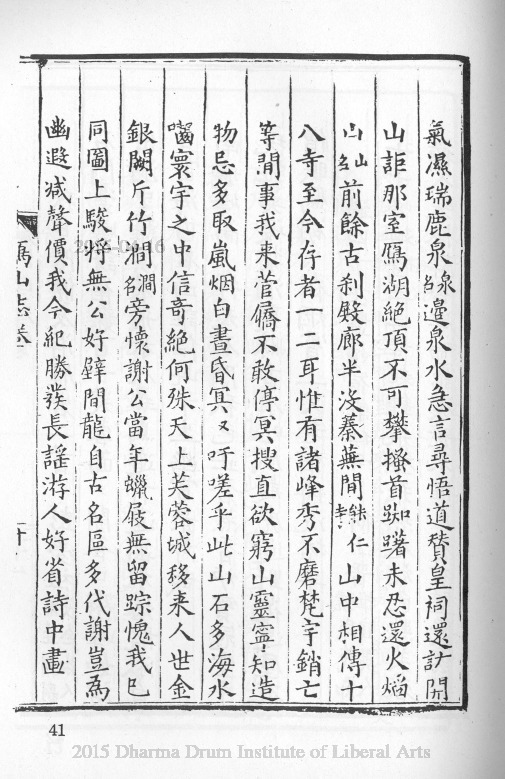 氣濕瑞鹿泉泉名邊泉水急言尋悟道贊皇祠還訪開
山詎那室鴈湖絶頂不可攀搔首踟躇未忍還火焰
山山名前餘古刹殿廊半没蓁蕪間仁山中相傳十
八寺至今存者一二耳惟有諸峰秀不磨梵宇銷亡
等閒事我来菅屩不敢停冥搜直欲窮山靈寧知造
物忌多取嵐烟白晝昏冥冥吁嗟乎此山石多海水
嚙寰宇之中信奇絶何殊天上芙蓉城移来人世金
銀闕斤竹澗澗名旁懷謝公當年蠟屐無留踪愧我已
同圖上駿將無公好壁間龍自古名區多代謝豈為
幽遐减聲價我今紀勝發長謡游人好省詩中畫
鴈山志卷
十
41
2015 Dharma Drum Institute of Liberal Arts